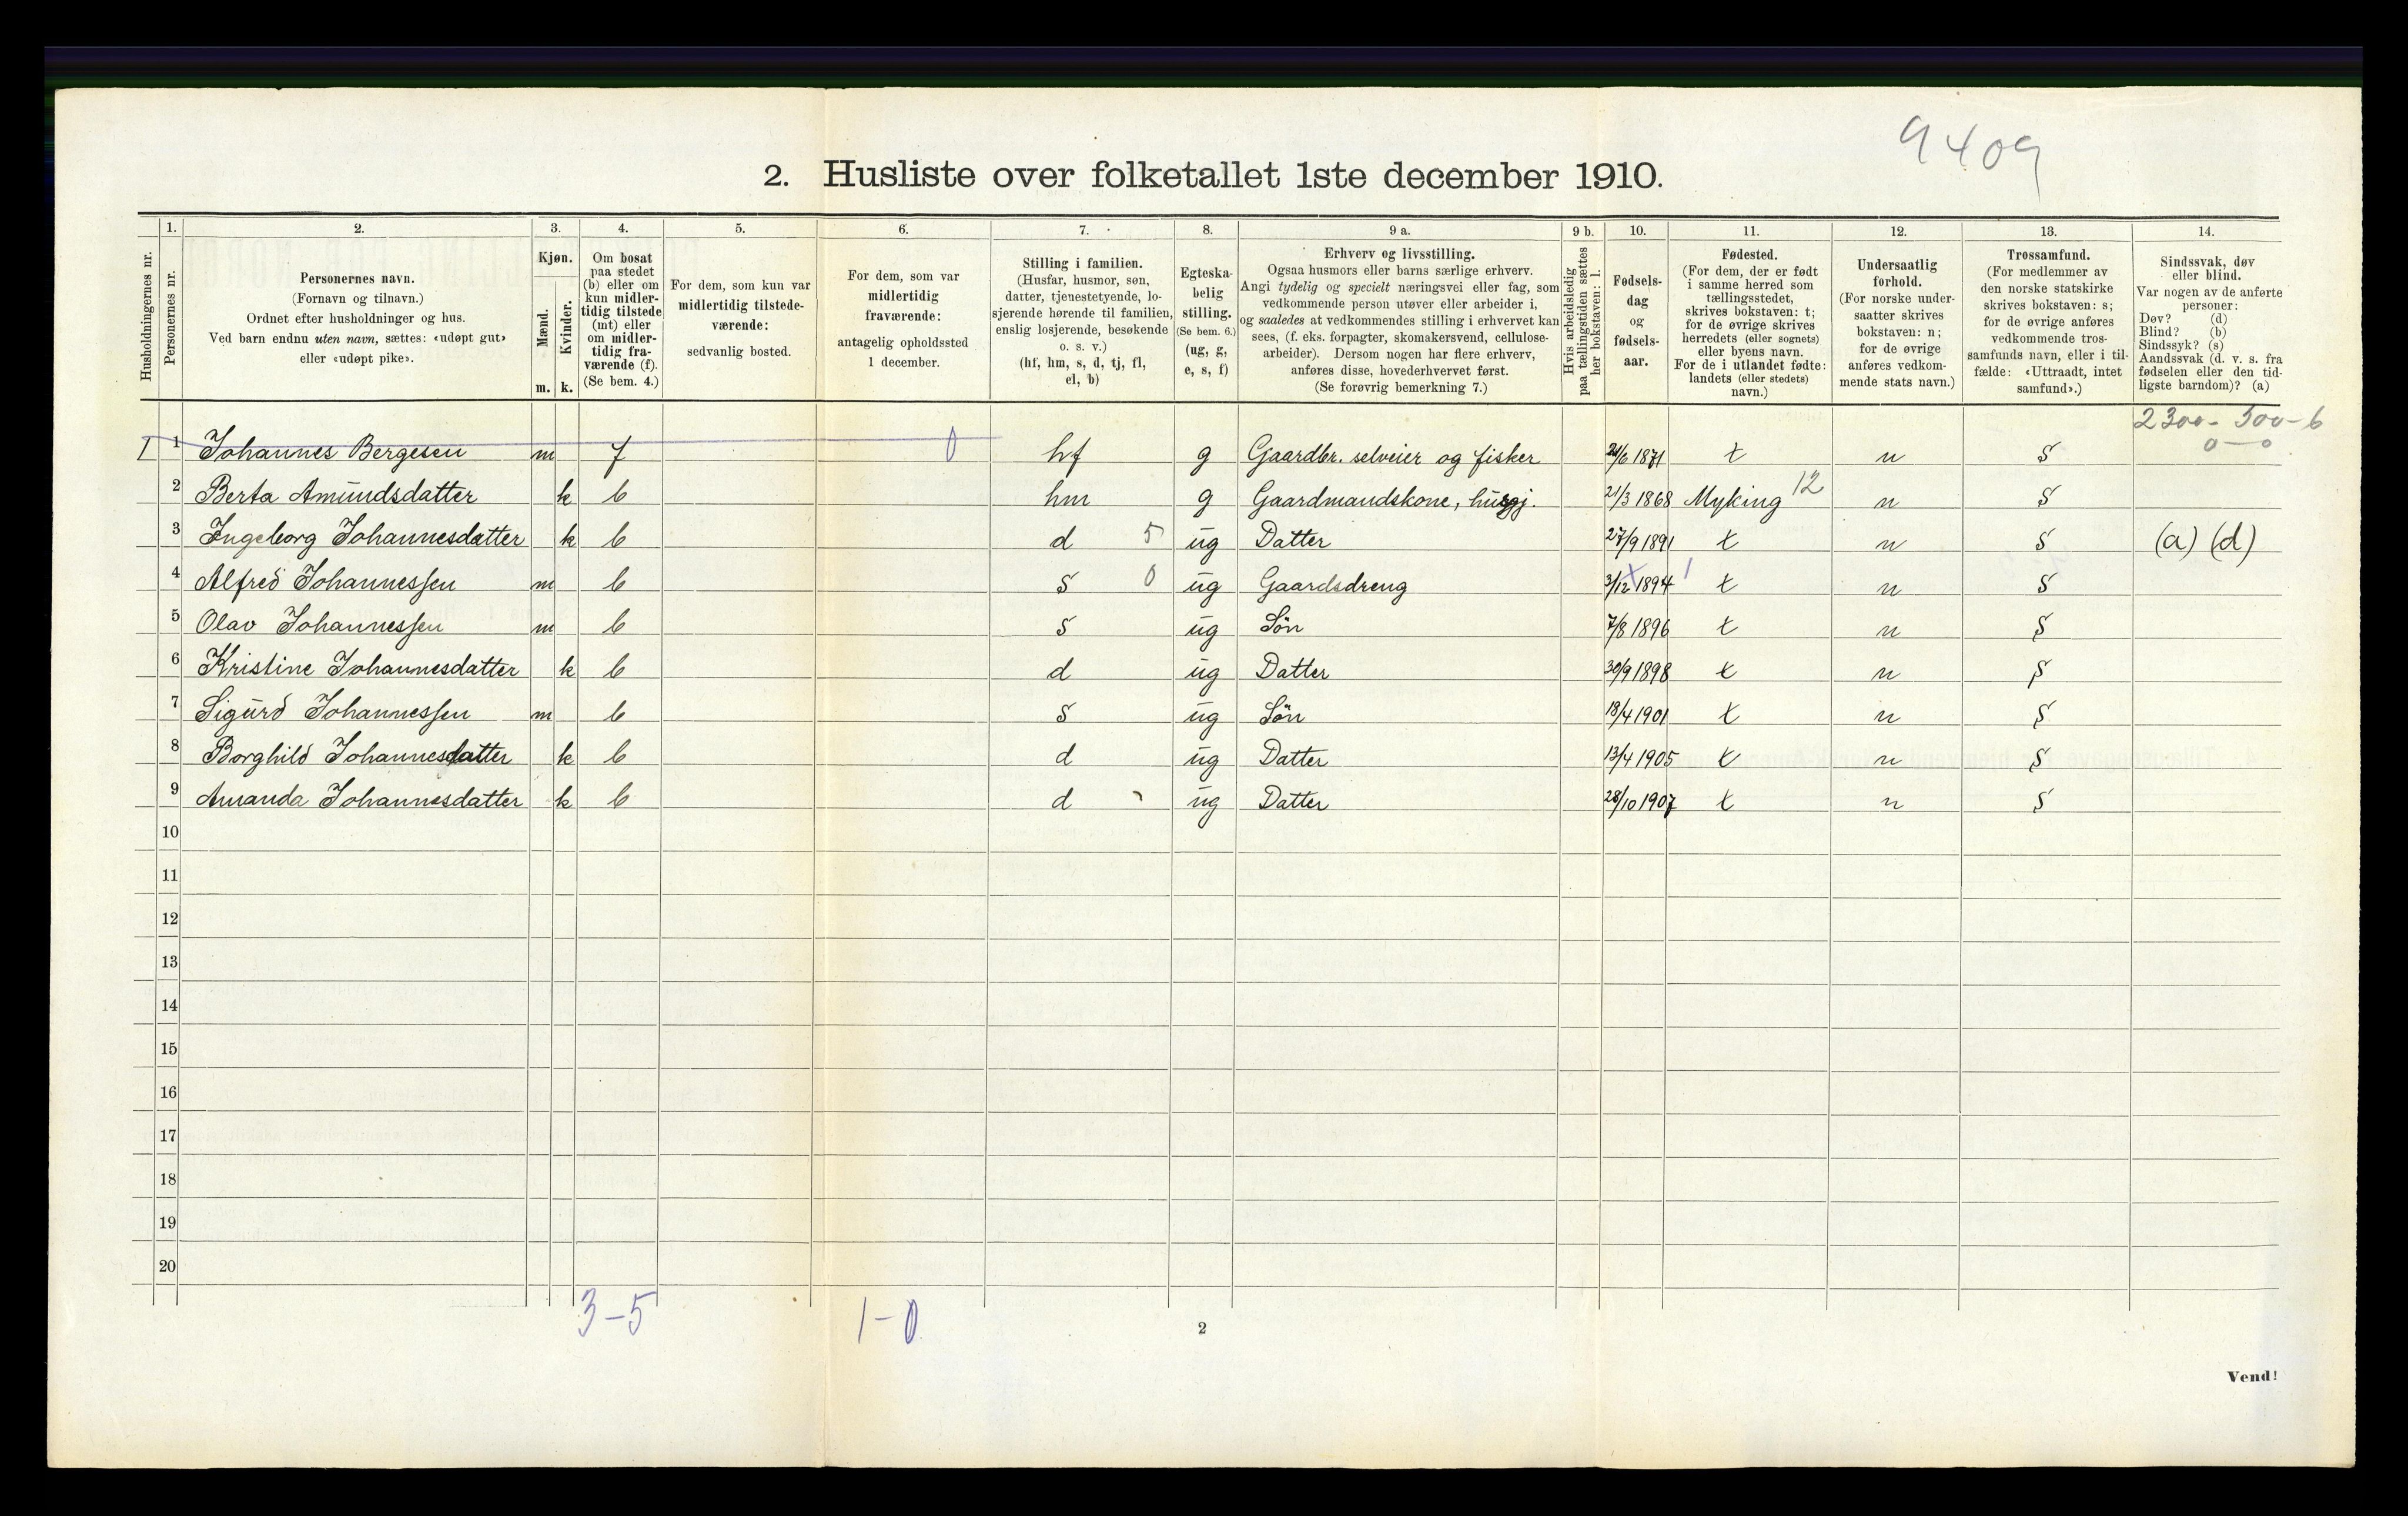 9409
2. Husliste over folketallet 1ste december 1910.
Husholdningernes nr.
1. Personernes nr.
2. Personernes navn.
(Fornavn og tilnavn.)
Ordnet efter husholdninger og hus.
Ved barn endnu uten navn, sættes: «udøpt gut»
eller «udøpt pike».
3. Kjøn.
Mænd. m.
Kvinder. k.
4. Om bosat
paa stedet
(b) eller om
kun midler-
tidig tilstede
(mt) eller
om midler-
tidig fra-
værende (f).
(Se bem. 4.)
5. For dem, som kun var
midlertidig tilstede-
værende:
sedvanlig bosted.
6. For dem, som var
midlertidig
fraværende:
antagelig opholdssted
1 december.
7. Stilling i familien.
(Husfar, husmor, søn,
datter, tjenestetyende, lo-
sjerende hørende til familien,
enslig losjerende, besøkende
o. s. v.)
(hf, hm, s, d, tj, fl,
el, b)
8. Egteska-
belig
stilling.
(Se bem. 6.)
(ug, g,
e, s, f)
9 a. Erhverv og livsstilling.
Ogsaa husmors eller barns særlige erhverv.
Angi tydelig og specielt næringsvei eller fag, som
vedkommende person utøver eller arbeider i,
og saaledes at vedkommendes stilling i erhvervet kan
sees, (f. eks. forpagter, skomakersvend, cellulose-
arbeider). Dersom nogen har flere erhverv,
anføres disse, hovederhvervet først.
(Se forøvrig bemerkning 7.)
9 b. Hvis arbeidsledig
paa tællingstiden sættes
her bokstaven: l.
10. Fødsels-
dag
og
fødsels-
aar.
11. Fødested.
(For dem, der er født
i samme herred som
tællingsstedet,
skrives bokstaven: t;
for de øvrige skrives
herredets (eller sognets)
eller byens navn.
For de i utlandet fødte:
landets (eller stedets)
navn.)
12. Undersaatlig
forhold.
(For norske under-
saatter skrives
bokstaven: n;
for de øvrige
anføres vedkom-
mende stats navn.)
13. Trossamfund.
(For medlemmer av
den norske statskirke
skrives bokstaven: s;
for de øvrige anføres
vedkommende tros-
samfunds navn, eller i til-
fælde: «Uttraadt, intet
samfund».)
14. Sindssvak, døv
eller blind.
Var nogen av de anførte
personer:
Døv? (d)
Blind? (b)
Sindssyk? (s)
Aandssvak (d. v. s. fra
fødselen eller den tid-
ligste barndom)? (a)
2300 - 500 - 6
0 - 0
1 1 Johannes Bergesen m f 0 hf g Gaardbr. selveier og fisker 21/6 1871 t n S
2 Berta Amundsdatter k b hm g Gaardmandskone, husgj. 21/3 1868 Myking 12 n S
3 Ingeborg Johannesdatter k b d 5 ug Datter 27/9 1891 t n S (a) (d)
4 Alfred Johannessen m b S 0 ug Gaardsdreng 3/12 1894 1 t n S
5 Olav Johannessen m b S ug Søn 7/8 1896 t n S
6 Kristine Johannesdatter k b d ug Datter 30/9 1898 t n S
7 Sigurd Johannessen m b S ug Søn 18/4 1901 t n S
8 Borghild Johannesdatter k b d ug Datter 13/4 1905 t n S
9 Amanda Johannesdatter k b d ug Datter 28/10 1907 t n S
10
11
12
13
14
15
16
17
18
19
20
3-5 1-0
2
Vend!